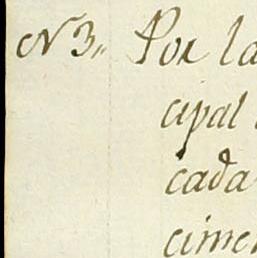 N 3,, Por la
cipal
cada
cimen